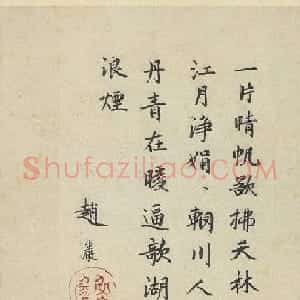 一片晴帆欲拂天林
江月净娟、輞川人
丹青在暖逼歌湖
浪煙
趙巖
Shufaziliao.com